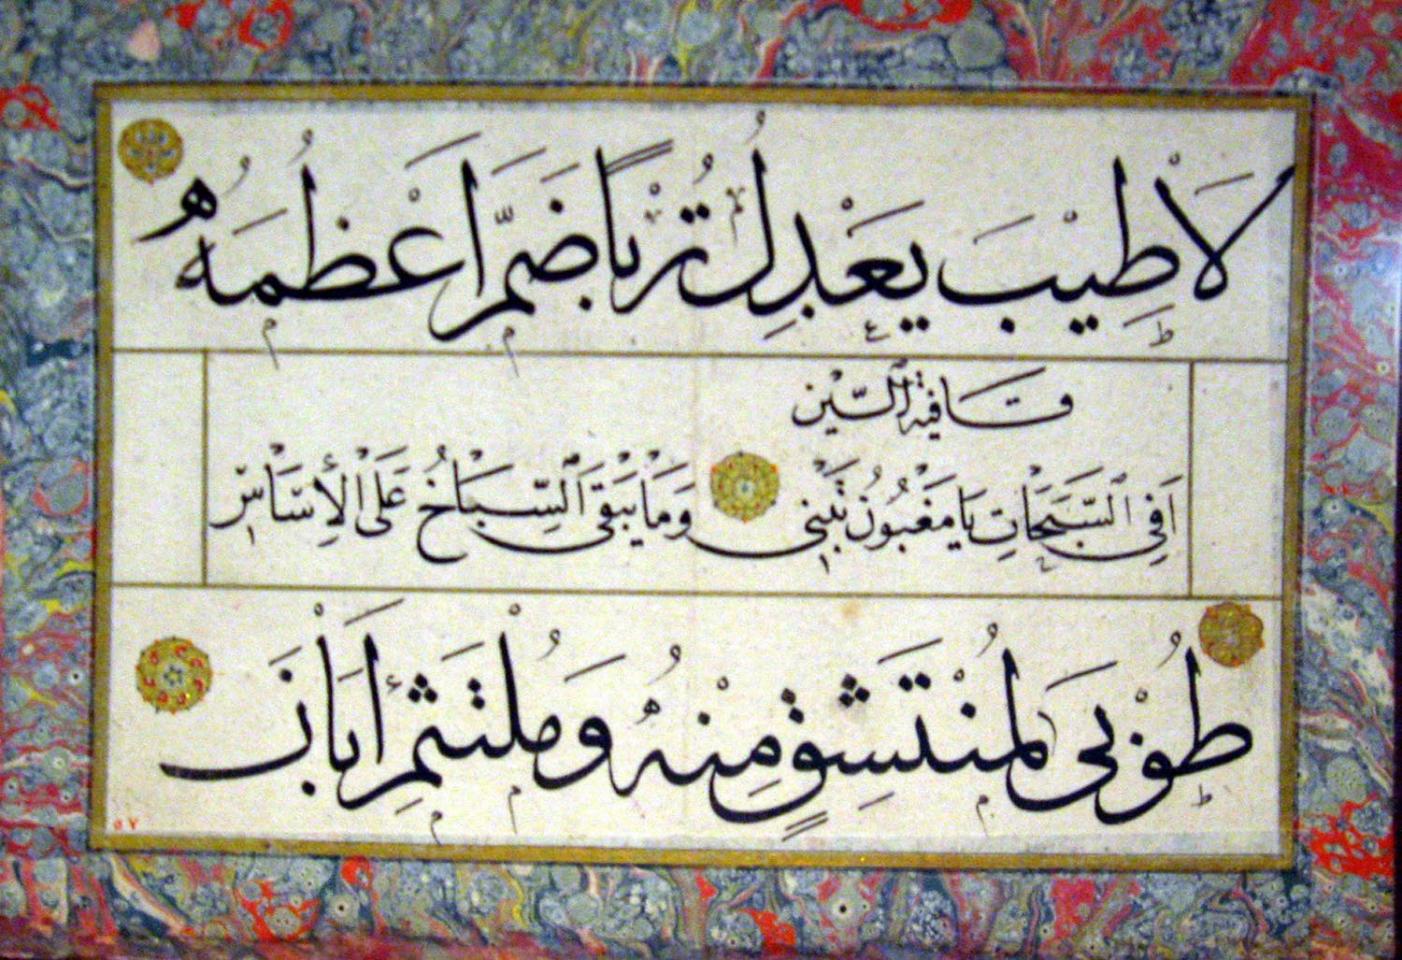 لَا طِيْبَ يَعْدِلُ تُرْبًا ضَمَّ اَعْظُمَهُ
قافية السّين
اَفِي السَّبَحَاتِ يَا مَغْبُونُ تَبْنِي وَمَا يَبْقَى السِّبَاخُ عَلَى الْأِسَاسْ
طُوْبَى لِمُنْتَشِقٍ مِنْهُ وَمُلْتَثِمِ اَبَانَ
٥٧